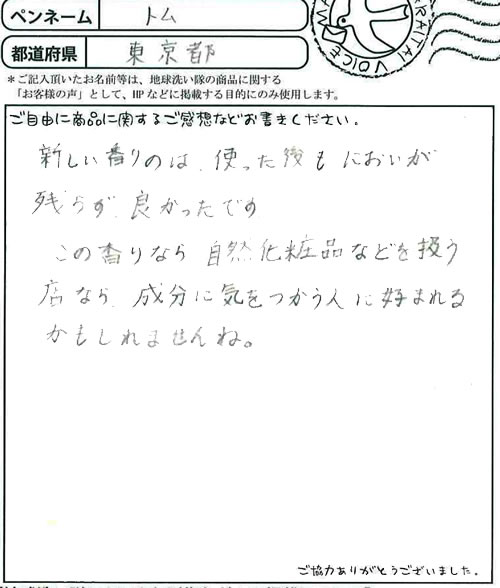 ペンネーム トム
都道府県 東京都
＊ご記入頂いたお名前等は、地球洗い隊の商品に関する
「お客様の声」として、HPなどに掲載する目的にのみ使用します。
ご自由に商品に関するご感想などお書きください。
新しい香りのは、使った後もにおいが
残らず、良かったです
この香りなら 自然化粧品などを扱う
店なら、成分に気をつかう人に好まれる
かもしれませんね。
ご協力ありがとうございました。